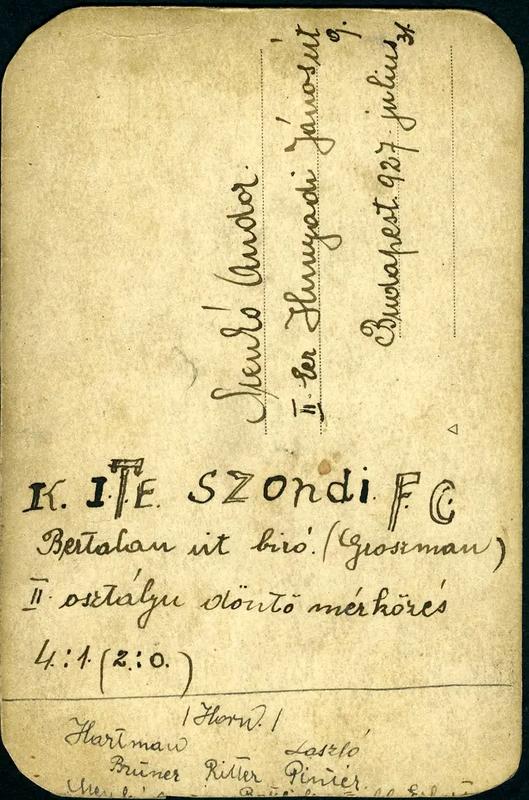 Andor.
II. ker Hunyadi János út 9.
Budapest. 927. julius 31.
K. I.T.E. SZONDI. F.C.
Bertalan út biró. (Groszman)
II osztályu döntő mérkőzés
4.:1. (2.:0.)
/Horn./
Hartman László
Bruner Ritter Pintér